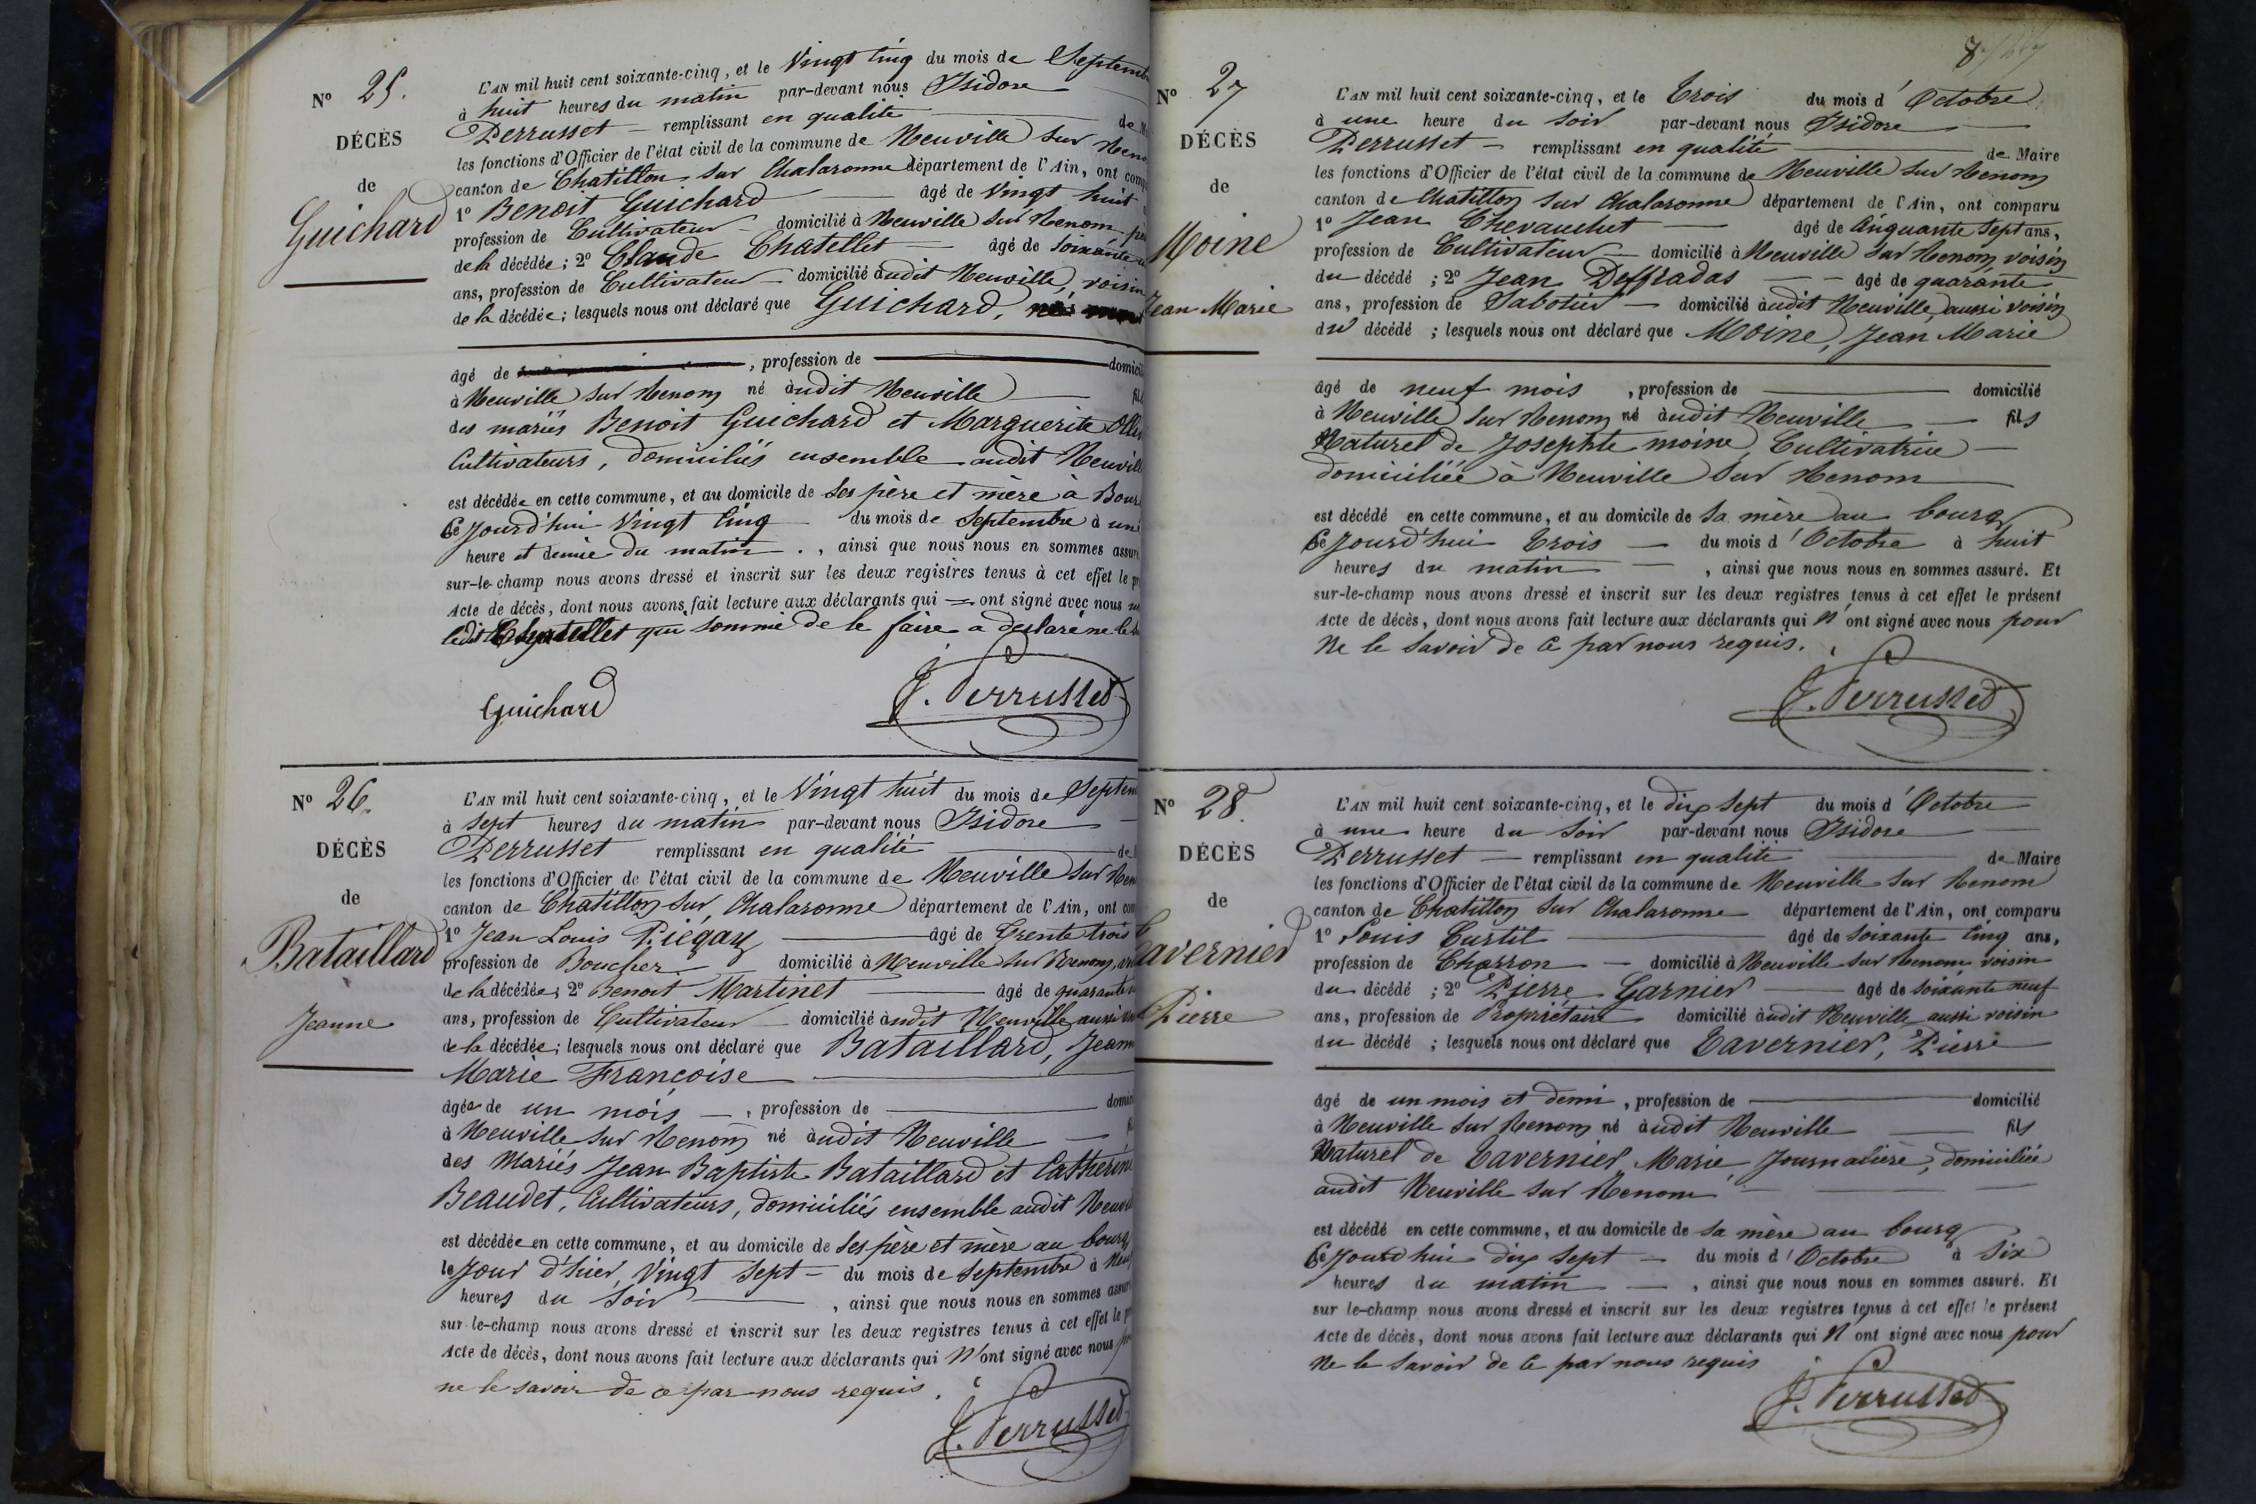 Nº 25.
DÉCÈS
de
Guichard
L'AN mil huit cent soixante-cinq, et le Vingt Cinq du mois de Septemb
à huit heures du matin par-devant nous Isidore
Perrusset remplissant en qualité de M
les fonctions d'Officier de l'état civil de la commune de Neuville sur Ren
canton de Chatillon sur Chalaronne département de l'Ain, ont comp
1º Benoit Guichard âgé de Vingt huit
profession de Cultivateur domicilié à Neuville sur Renom
de la décédée; 2º Claude Chatellet âgé de Soixante
ans, profession de Cultivateur domicilié àudit Neuville, voisin
de la décédée; lesquels nous ont déclaré que Guichard,
âgé de , profession de domicili
à Neuville sur Renom né àudit Neuville fil
des mariés Benoit Guichard et Marguerite
Cultivateurs, domiciliés ensemble audit Neuvill
est décédée en cette commune, et au domicile de Ses père et mère à Bour
Ce Jourd'hui Vingt Cinq du mois de Septembre à une
heure et demie du matin . , ainsi que nous nous en sommes assuré
sur-le-champ nous avons dressé et inscrit sur les deux registres tenus à cet effet le pr
Acte de décès, dont nous avons fait lecture aux déclarants qui ont signé avec nous
ledit Chatellet qui sommé de le faire a déclaré ne le
Guichard
J. Perrusset
Nº 26.
DÉCÈS
de
Bataillard
Jeanne
L'AN mil huit cent soixante-cinq, et le Vingt huit du mois de Septem
à Sept heures du matin par-devant nous Isidore
Perrusset remplissant en qualité de
les fonctions d'Officier de l'état civil de la commune de Neuville sur Ren
canton de Chatillon sur Chalaronne département de l'Ain, ont com
1º Jean Louis Piégay âgé de Trente trois
profession de Boucher domicilié à Neuville sur Renom,
de la décédée; 2º Benoit Martinet âgé de quarante
ans, profession de Cultivateur domicilié àudit Neuville aussi
de la décédée; lesquels nous ont déclaré que Bataillard, Jeann
Marie Françoise
âgée de un mois , profession de domici
à Neuville sur Renom né àudit Neuville fil
des Mariés Jean Baptiste Bataillard et Catherine
Beaudet, Cultivateurs, domiciliés ensemble audit Neuvil
est décédée en cette commune, et au domicile de Ses père et mère au bourg
le Jour d'hier, Vingt Sept du mois de Septembre à Neuf
heures du Soir , ainsi que nous nous en sommes assuré
sur-le-champ nous avons dressé et inscrit sur les deux registres tenus à cet effet le p
Acte de décès, dont nous avons fait lecture aux déclarants qui N'ont signé avec nous
ne le savoir de ce par nous requis.
J. Perrusset
Nº 27
DÉCÈS
de
Moine
Jean Marie
L'AN mil huit cent soixante-cinq, et le Trois du mois d'Octobre
à une heure du Soir par-devant nous Isidore
Perrusset remplissant en qualité de Maire
les fonctions d'Officier de l'état civil de la commune de Neuville sur Renom
canton de Chatillon sur Chalaronne département de l'Ain, ont comparu
1º Jean Chevauchet âgé de Cinquante Sept ans,
profession de Cultivateur domicilié à Neuville sur Renom, voisin
du décédé ; 2º Jean Deffradas âgé de quarante
ans, profession de Sabotier domicilié àudit Neuville aussi voisin
du décédé ; lesquels nous ont déclaré que Moine, Jean Marie
âgé de neuf mois , profession de domicilié
à Neuville sur Renom né àudit Neuville fils
Naturel de Josephte moine Cultivatrice
domiciliée à Neuville sur Renom
est décédé en cette commune, et au domicile de Sa mère au bourg
Ce Jourd'hui Trois du mois d'Octobre à huit
heures du matin , ainsi que nous nous en sommes assuré. Et
sur-le-champ nous avons dressé et inscrit sur les deux registres tenus à cet effet le présent
Acte de décès, dont nous avons fait lecture aux déclarants qui N'ont signé avec nous pour
Ne le Savoir de Ce par nous requis.
J. Perrusset
Nº 28.
DÉCÈS
de
Tavernier
Pierre
L'AN mil huit cent soixante-cinq, et le dix Sept du mois d'Octobre
à une heure du Soir par-devant nous Isidore
Perrusset remplissant en qualité de Maire
les fonctions d'Officier de l'état civil de la commune de Neuville sur Renom
canton de Chatillon sur Chalaronne département de l'Ain, ont comparu
1º Louis Curtil âgé de Soixante Cinq ans,
profession de Charron domicilié à Neuville sur Renom, voisin
du décédé ; 2º Pierre Garnier âgé de Soixante neuf
ans, profession de Propriétaire domicilié àudit Neuville aussi voisin
du décédé ; lesquels nous ont déclaré que Tavernier, Pierre
âgé de un mois et demi , profession de domicilié
à Neuville sur Renom né àudit Neuville fils
Naturel de Tavernier Marie Journalière, domiciliée
audit Neuville sur Renom
est décédé en cette commune, et au domicile de Sa mère au bourg
Ce Jourd'hui dix Sept du mois d'Octobre à Six
heures du matin , ainsi que nous nous en sommes assuré. Et
sur le-champ nous avons dressé et inscrit sur les deux registres tenus à cet effet le présent
Acte de décès, dont nous avons fait lecture aux déclarants qui N'ont signé avec nous pour
Ne le Savoir de Ce par nous requis
J. Perrusset